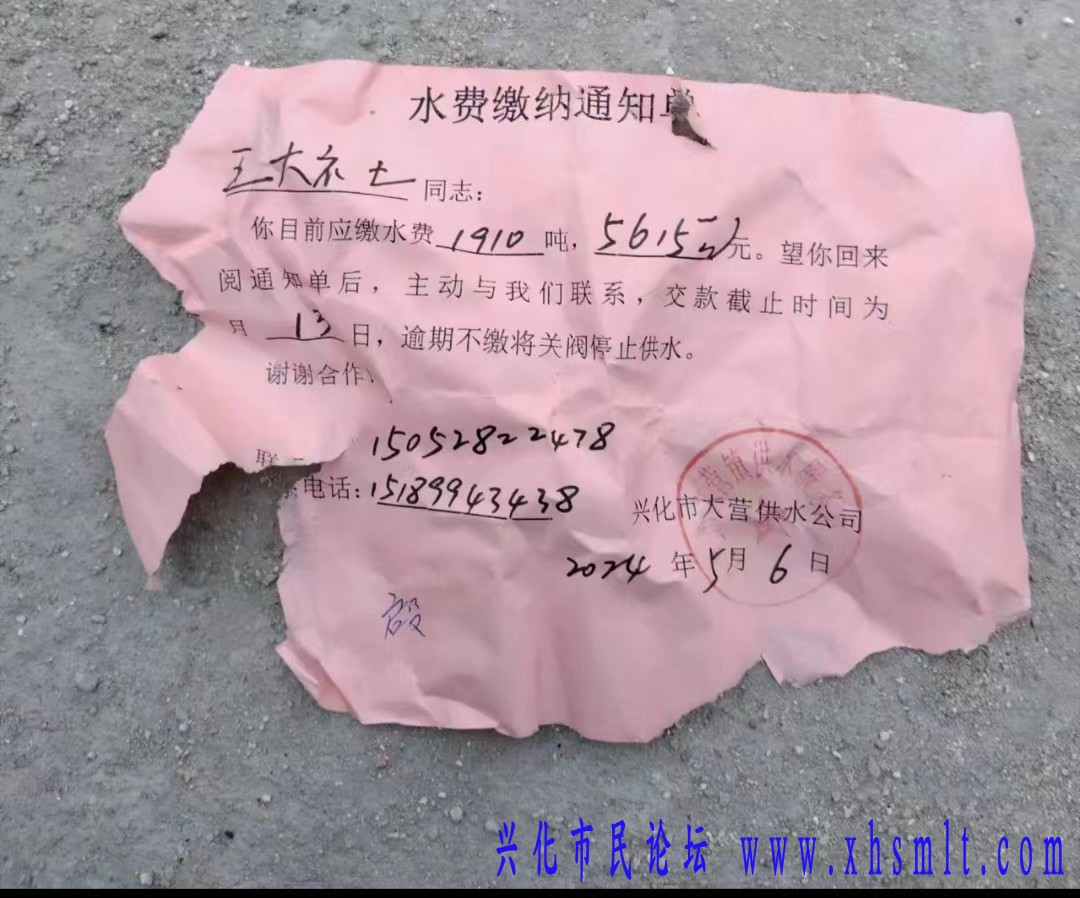 水费缴纳通知单
王大衣士 同志：
你目前应缴水费 1910 吨，5615 元。望你回来
阅通知单后，主动与我们联系，交款截止时间为
月 13 日，逾期不缴将关阀停止供水。
谢谢合作
联
15052822478
电话：15189943438
兴化市大营供水公司
2024 年 5 月 6 日
兴化市民论坛 www.xhsmlt.com